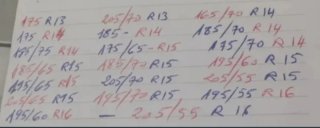 175 R13 205/70 R13 165/70 R14
175 R14 185 - R14 185/70 R14
195/75 R14 175/65 - R15 175/70 R14
185/65 R15 185/70 R15 195/60 R15
195/65 R15 205/70 R15 205/55 R15
205/65 R15 195/70 R15 195/55 R16
195/60 R16 — 205/55 R16